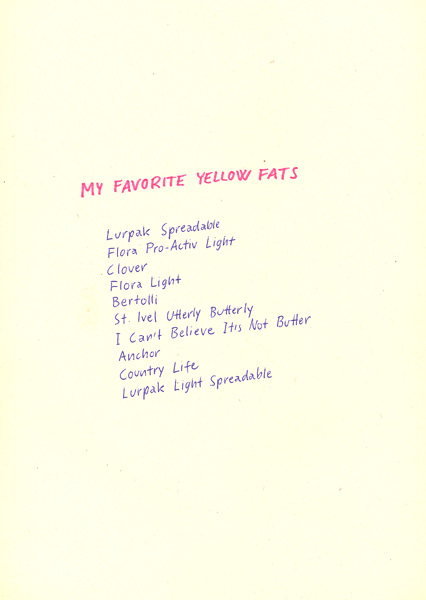 MY FAVORITE YELLOW FATS
Lurpak Spreadable
Flora Pro-Activ Light
Clover
Flora Light
Bertolli
St. Ivel Utterly Butterly
I Can't Believe It's Not Butter
Anchor
Country Life
Lurpak Light Spreadable